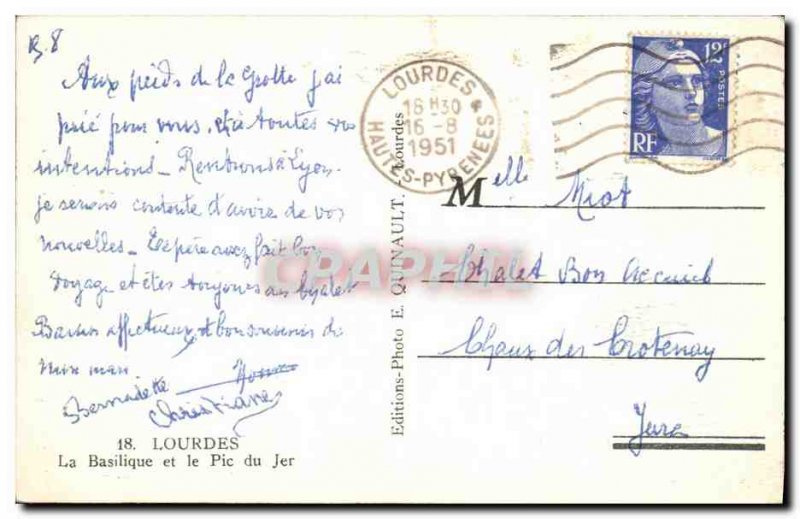 Aux pieds de la Grotte j'ai
prié pour vous, et à toutes vos
intentions - Rentrons à Lyon.
je serais contente d'avoir de vos
nouvelles - Espère avez fait bon
voyage et êtes toujours au chalet
Baisers affectueux et bon souvenir de
Bernadette
Christiane
18. LOURDES
La Basilique et le Pic du Jer
Editions-Photo E. QUINAULT. - Lourdes
LOURDES
18 H 30
16 - 8
1951
HAUTES-PYRENEES
12F
POSTES
RF
CPAPHIL
Melle Miot
Chalet Bon Accueil
Chaux des Crotenay
Jura